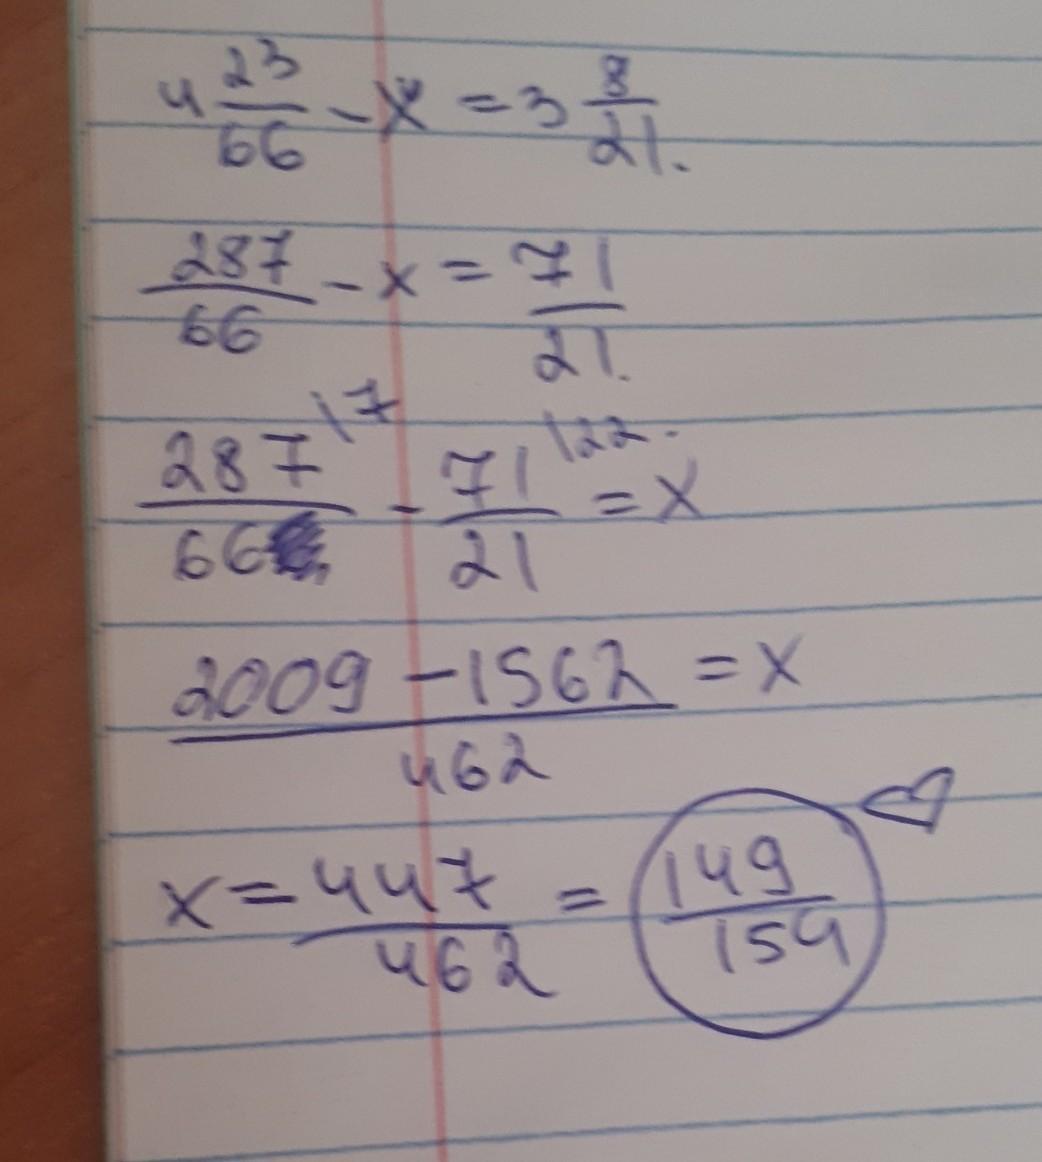 4 23/66 - x = 3 8/21.
287/66 - x = 71/21.
287/66 \7 - 71/21 \22. = x
2009 - 1562 / 462 = x
x = 447/462 = 149/154